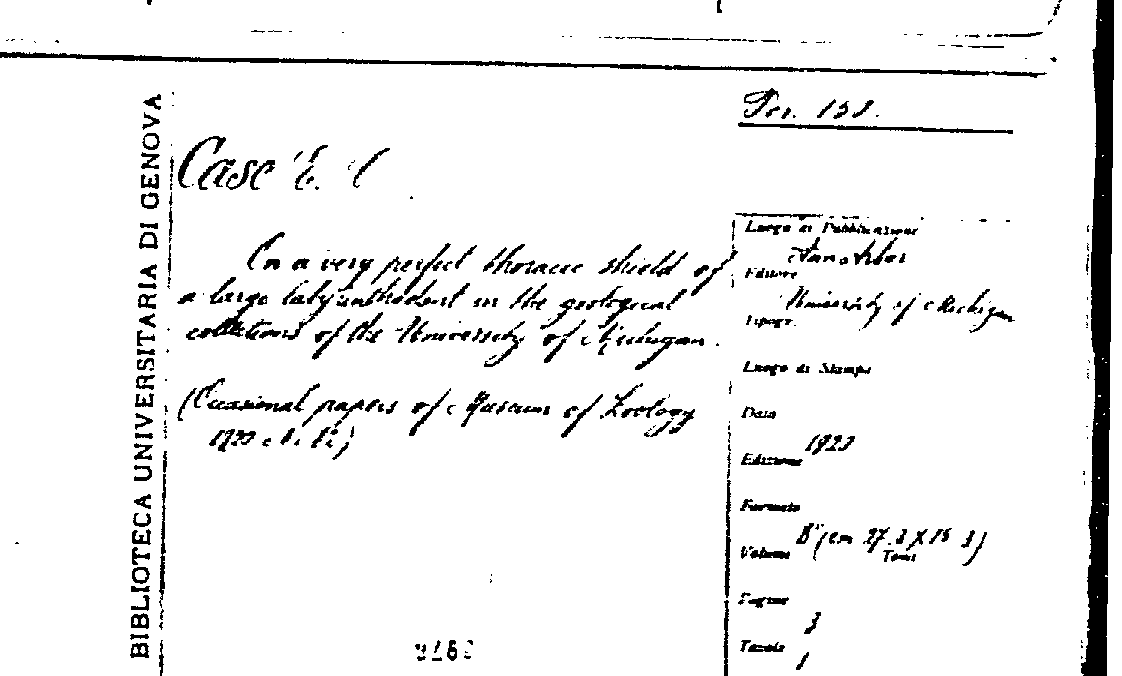 BIBLIOTECA UNIVERSITARIA DI GENOVA
Per.
Case E. C
On a very perfect thoracic shield of
a large labyrinthodont in the geological
collections of the University of Michigan.
(Occasional papers of Museum of Zoology
Luogo di Pubblicazione
Ann Arbor
Editore
University of Michigan
Tipogr.
Luogo di Stampa
Data
Edizione
Formato
8° (cm
Volume
Tomi
Pagine
3
Tavole
1